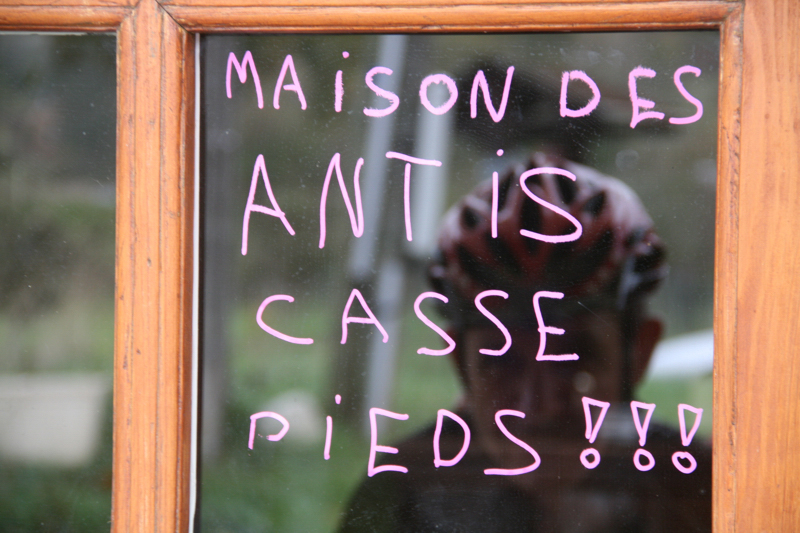 MAiSON DES
ANTiS
CASSE
PiEDS!!!